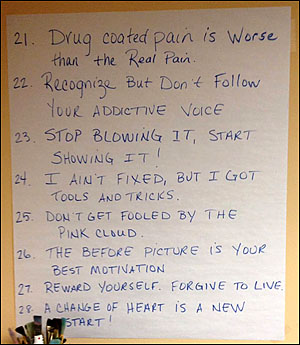 21. Drug coated pain is Worse
than the Real Pain.
22. Recognize But Don't Follow
YOUR ADDICTIVE VOICE
23. STOP BLOWING IT, START
SHOWING IT!
24. I AIN'T FIXED, BUT I GOT
TOOLS AND TRICKS.
25. DON'T GET FOOLED BY THE
PINK CLOUD.
26. THE BEFORE PICTURE IS YOUR
BEST MOTIVATION
27. REWARD YOURSELF. FORGIVE TO LIVE.
28. A CHANGE OF HEART IS A NEW
START!